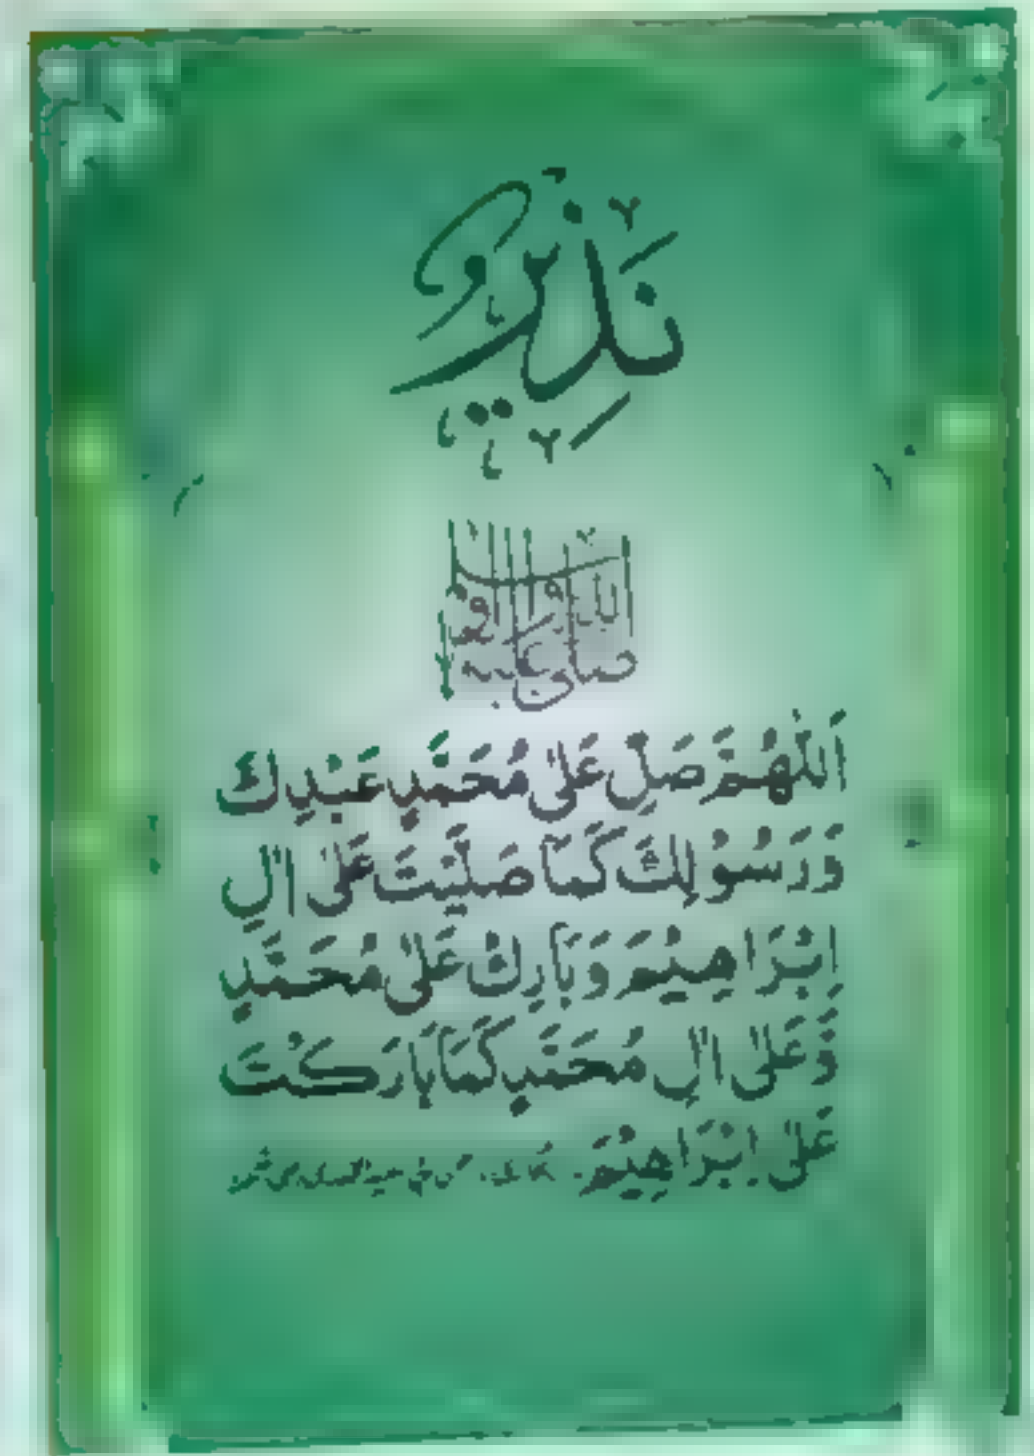 نَذِيْرٌ
صلى الله عليه وآله وسلم
اَللّٰهُمَّ صَلِّ عَلٰى مُحَمَّدٍ عَبْدِكَ
وَرَسُوْلِكَ كَمَا صَلَّيْتَ عَلٰى اٰلِ
اِبْرَاهِيْمَ وَبَارِكْ عَلٰى مُحَمَّدٍ
وَّعَلٰى اٰلِ مُحَمَّدٍ كَمَا بَارَكْتَ
عَلٰى اِبْرَاهِيْمَ.